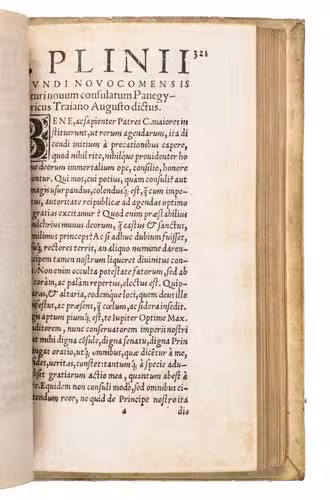 . PLINII
321
VNDI NOVOCOMENSIS
turi nouum consulatum Panegy-
ricus Traiano Augusto dictus.
BENE, ac sapienter Patres C. maiores in
stituerunt, ut rerum agendarum, ita di
cendi initium à precationibus capere,
quod nihil rite, nihilque prouidenter ho
ne deorum immortalium ope, consilio, honore
entur. Qui mos, cui potius, quàm consuli? aut
magis usurpandus, colendusq́; est, q̃ cum impe-
tu, autoritate reipublicæ ad agendas optimo
gratias excitamur? Quod enim præstabilius
pulchrius munus deorum, q̃ castus & sanctus,
milimus princeps? Ac si adhuc dubium fuisset,
suq́; rectores terris, an aliquo numine daren-
cipem tamen nostrum liqueret diuinitus con-
. Non enim occulta potestate fatorum, sed ab
coràm, ac palàm repertus, electus est. Quip-
aras, & altaria, eodemque loci, quem deus ille
ifestus, ac præsent, q̃ cœlum, ac sidera insedit.
gis aptum piumq́; est, te Iupiter Optime Max.
ditorem, nunc conseruatorem imperii nostri
ut mihi digna cõsule, digna senatu, digna Prin
ingat oratio, utq́; omnibus, quæ dicẽtur à me,
ides, ueritas, constet: tantumq́; à specie adu-
absit gratiarum actio mea, quantum abest à
te. Equidem non consuli modò, sed omnibus ci-
tendum reor, ne quid de Principe nostro ita
a
dic